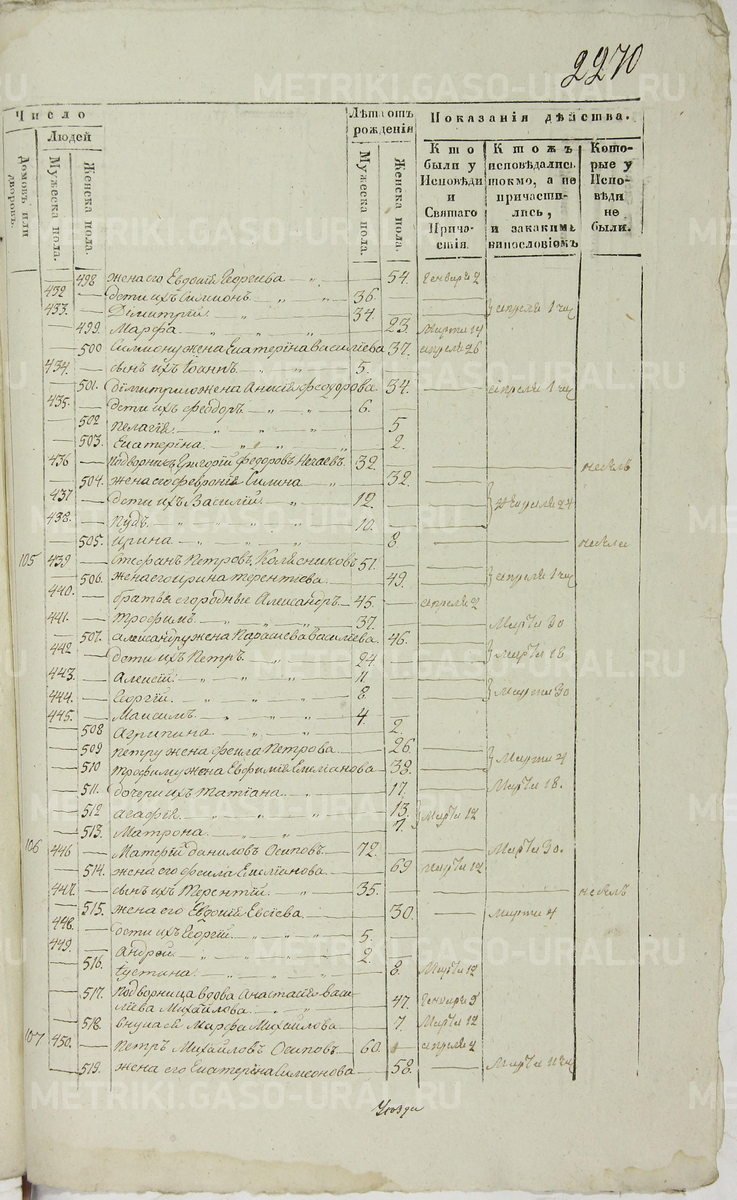 2270
Число
Людей
Домовъ или дворовъ.
Мужеска пола.
Женска пола.
Лѣта отъ рожденія
Мужеска пола.
Женска пола.
Показанія дѣйства.
Кто были у Исповѣди и Святаго Причастія.
Ктожъ исповѣдались токмо, а не причастились, и закакимъ винословіомъ
Которые у Исповѣди не были.
498 жена его Евдокія Георгіева 54. Генваря 2
432 дети ихъ Симионъ 36.
433. Димитрій 34. апреля 1 чис
499. Марфа 23 Марта 14
500 Симиону жена Екатерина Василіева 37. апреля 26
434. сынъ ихъ Іоаннъ 5.
501. Димитрию жена Анисія Феодорова 34. апреля 1 чис
435. дети ихъ Феодоръ 6.
502 Пелагія 5
503. Екатерина 2.
436 Подворникъ Григорій Федоровъ Нечаевъ 32.
504. жена его Феврониѧ Силина 32.
437 дети ихъ Василій 12. апреля 24
438. Пудъ 10.
505. Ирина 8
105 439 Стефанъ Петровъ Колясниковъ 51.
506. жена его Ирина Терентіева 49. апреля 1 чис
440. братья его родные Александръ 45. апреля 2
441. Трофимъ 37. Марта 30
507. Александру жена Параскева Василіева 46.
442. дети ихъ Петръ 24 Марта 18
443. Алексій 11
444. Георгій 8. Марта 30
445. Максимъ 4.
508 Агрипина 2.
509 Петру жена Феkла Петрова 26.
510 Трофиму жена Евфимія Емелианова 38. Марта 4
511. дочери ихъ Татіана 17. Марта 18.
512 Агафія 13.
513. Матрона 7. Марта 12
106 446 Матфій Даниловъ Осиповъ 72. Марта 30.
514. жена его Фекла Емелианова 69 Марта 12
447. сынъ ихъ Терентій 35.
515. жена его Евдокія Евсіева 30. Марта 4
448. дети ихъ Георгій 5.
449. Андрей 2.
516. Іустина 8. Марта 12
517. Подворница вдова Анастасія Васи-
ліева Михайлова 47. Генваря 5
518. внука ея Марфа Михайлова 7. Марта 12
107 450. Петръ Михайловъ Осиповъ 60. апреля 2
519. жена его Екатерина Симеонова 58.
METRIKI.GASO-URAL.RU